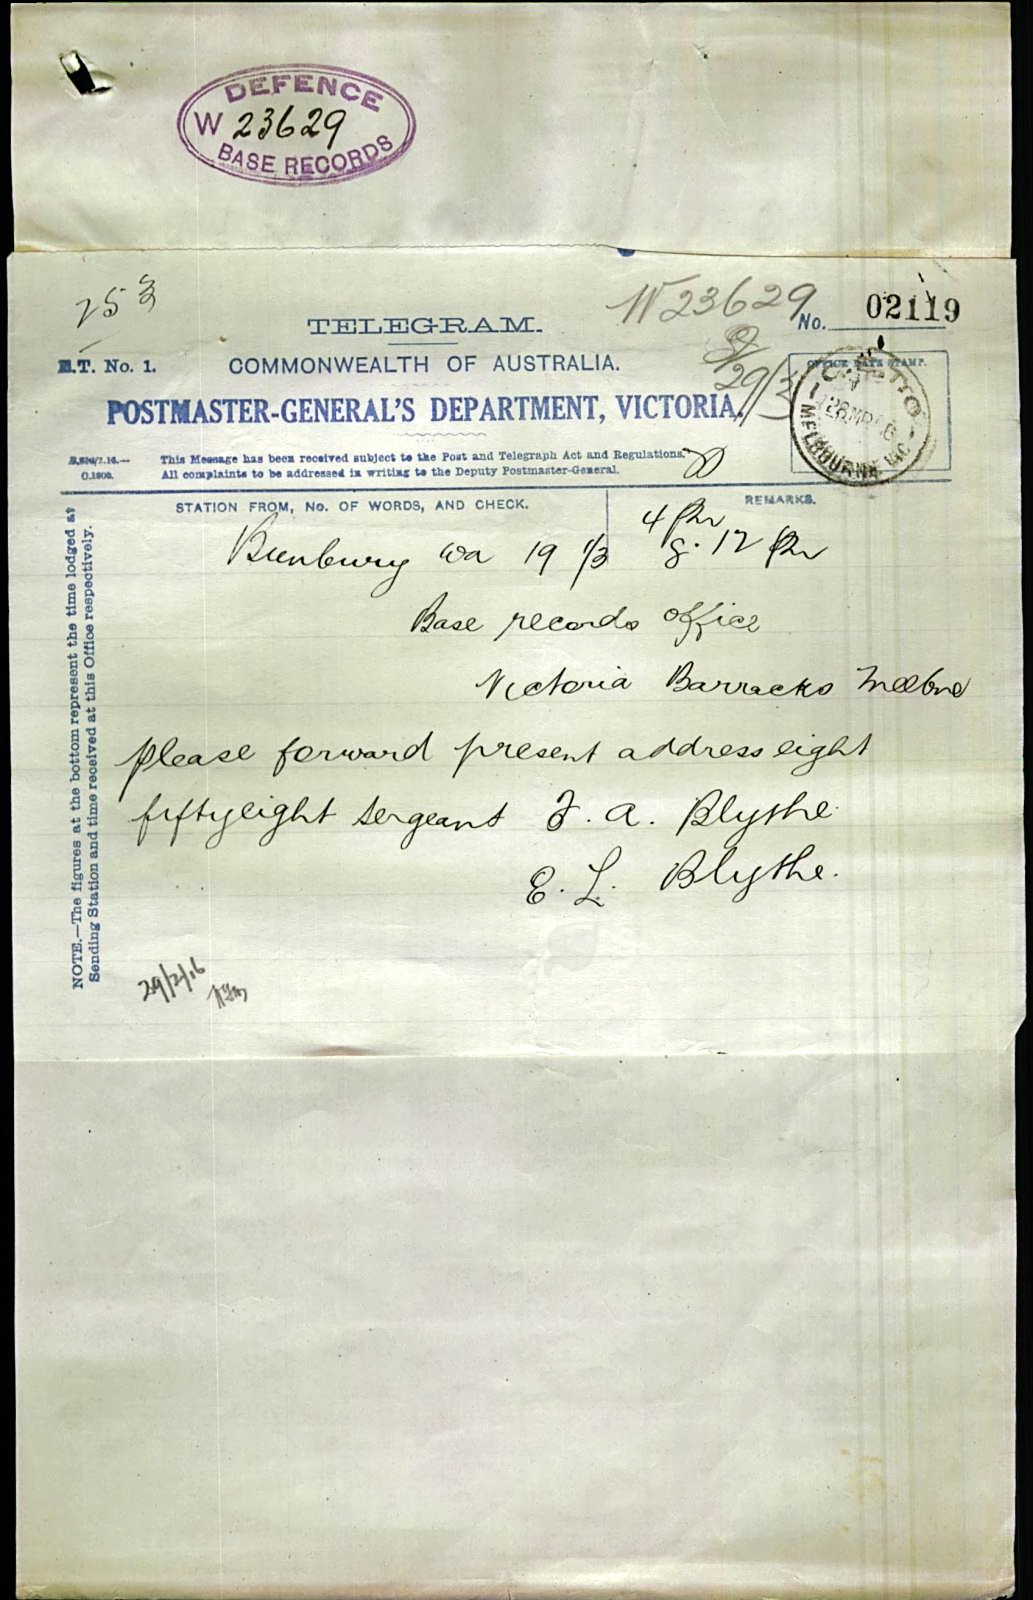 DEFENCE
W 23629
BASE RECORDS
W 23629
No. 02119
TELEGRAM.
E.T. No. 1.
COMMONWEALTH OF AUSTRALIA.
29/3
OFFICE DATE STAMP.
POSTMASTER-GENERAL'S DEPARTMENT, VICTORIA.
MELBOURNE VIC
This Message has been received subject to the Post and Telegraph Act and Regulations.
C.1909.
All complaints to be addressed in writing to the Deputy Postmaster-General.
STATION FROM, No. OF WORDS, AND CHECK.
REMARKS.
Bunbury Wa 19 1/3 8.12 pm
Base records office
Victoria Barracks Melbne
please forward present address eight
fiftyeight sergeant F. A. Blythe
E. L. Blythe.
NOTE.—The figures at the bottom represent the time lodged at
Sending Station and time received at this Office respectively.